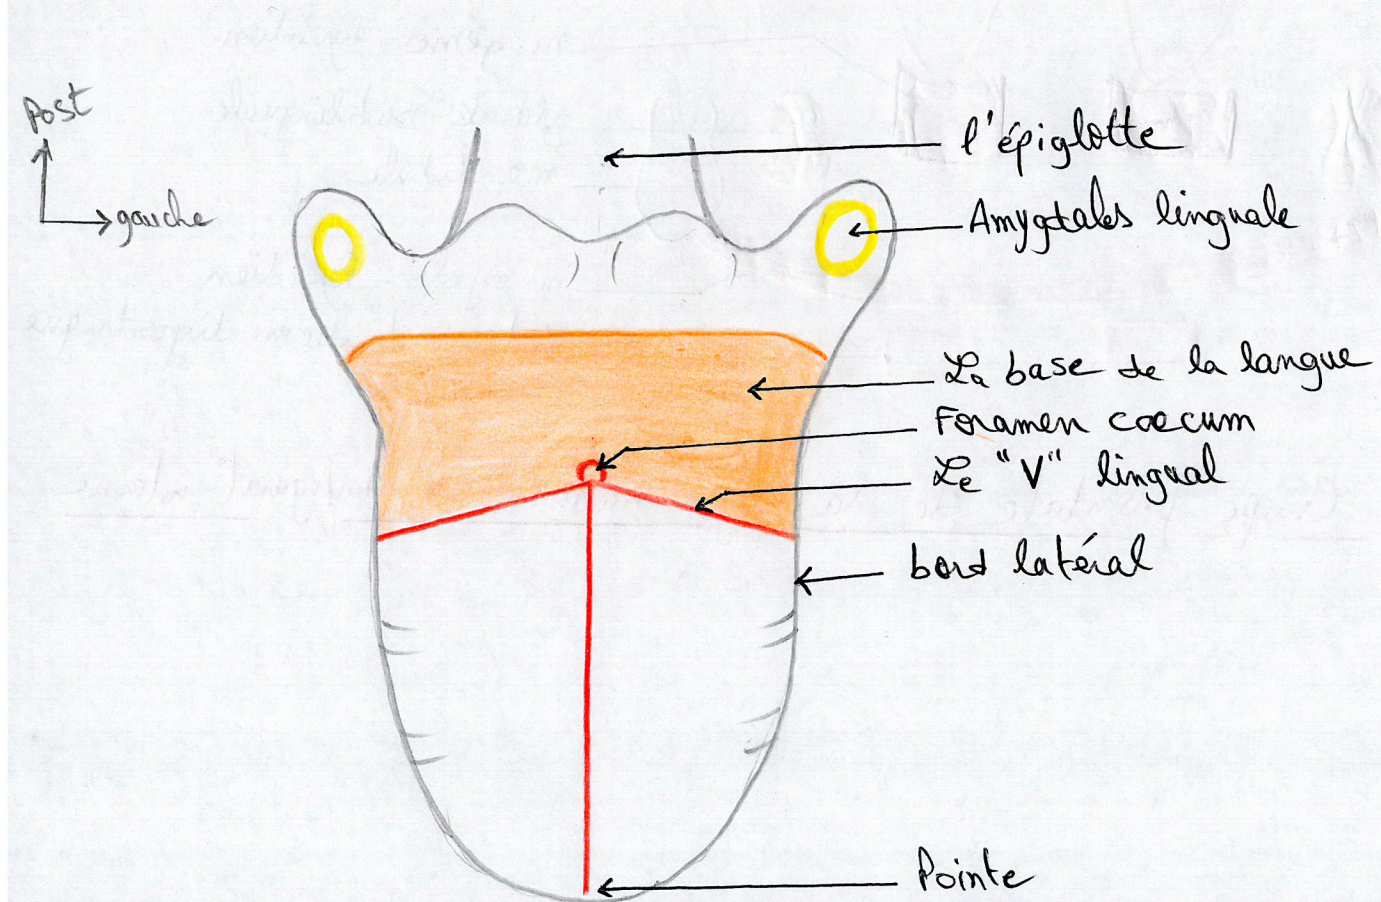 Post
gauche
l'épiglotte
Amygdales linguale
La base de la langue
Foramen cœcum
Le "V" lingual
bord latéral
Pointe